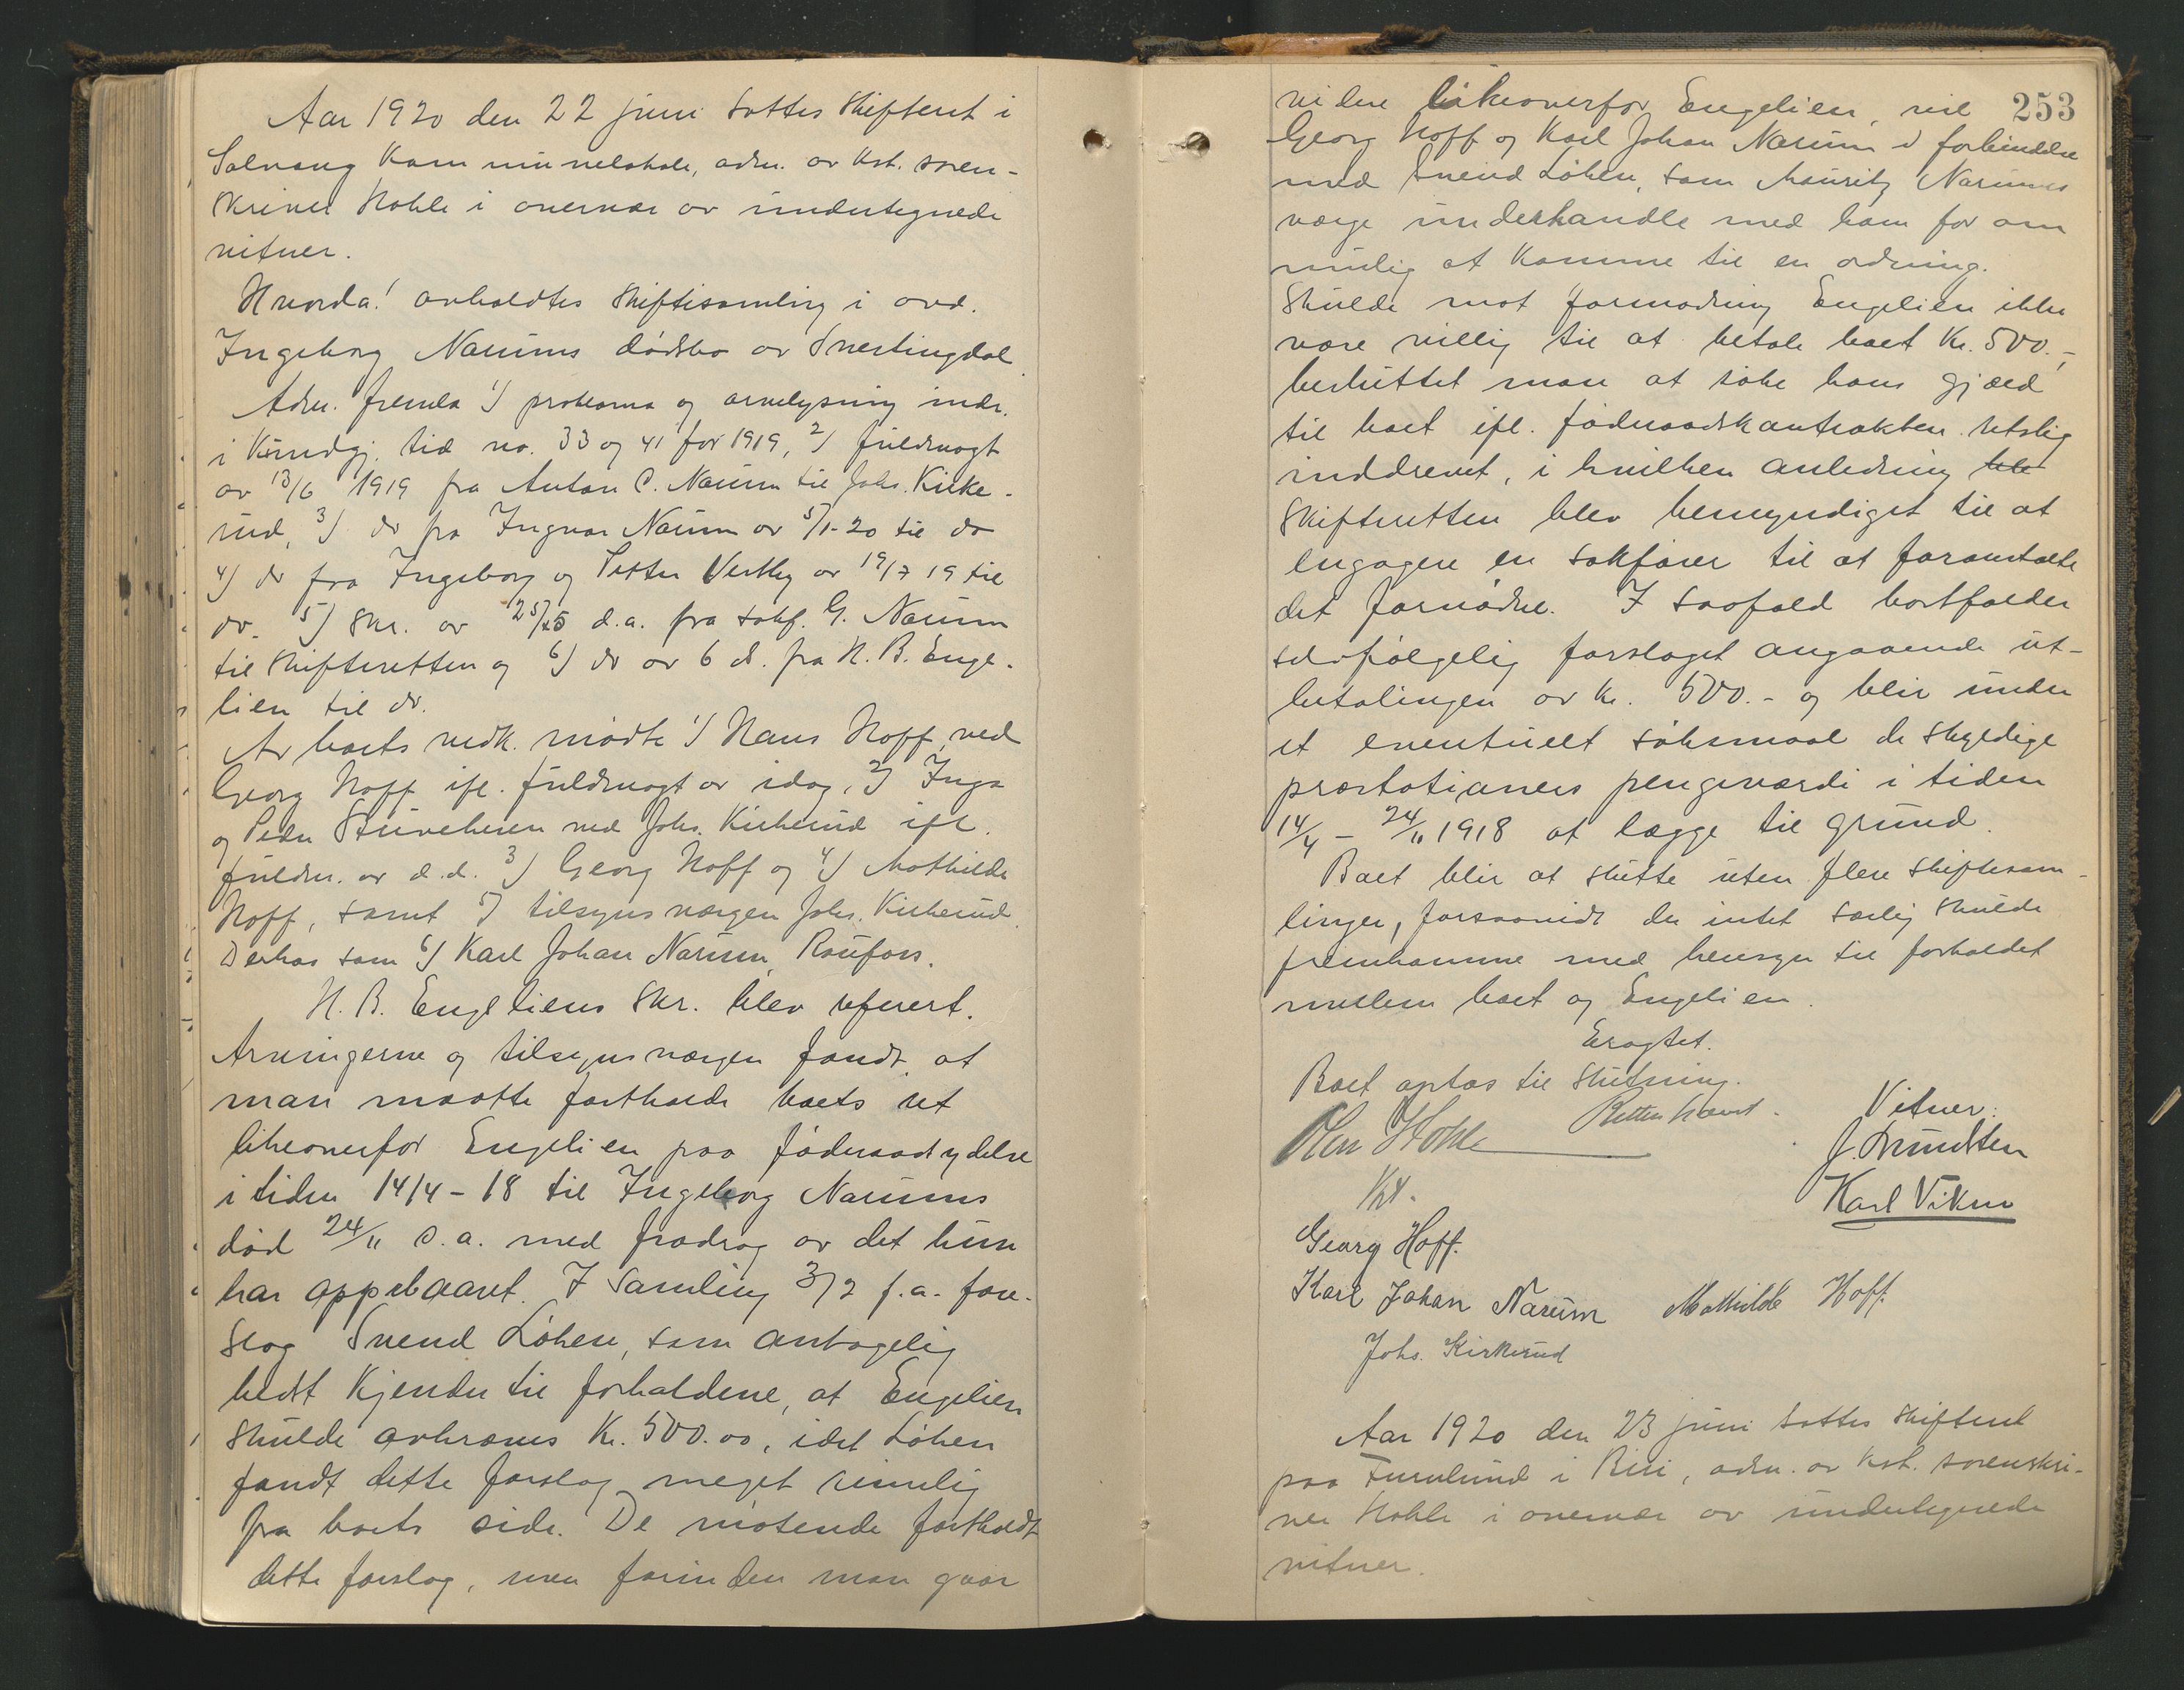 Aar 1920 den 22 juni sattes skifteret i
Solvang kommunelokale, adm. av kst. soren-
skriver Hohle i overvær av undertegnede
vitner.
Hvorda! avholdtes skiftesamling i avd.
Ingeborg Narums dødsbo av Snertingdal.
Adm. fremla 1) proklama og arvelysning indr.
i Kundgj. tid no. 33 og 41 for 1919, 2) fuldmagt
av 13/6 1919 fra Anton C. Narum til Johs. Kirke-
rud, 3) do fra Ingvar Narum av 5/1-20 til do
4) do fra Ingeborg og Petter Vestby av 19/7 19 til
do. 5) Skr. av 25/5 d.a. fra sakf. G. Narum
til skifteretten og 6) do av 6 ds. fra H. B. Enge-
lien til do.
Av boets vedk. møtte 1) Hans Hoff ved
Georg Hoff ifl. fuldmagt av idag, 2) Inga
og Peder Stuveheren ved Johs. Kirkerud ifl.
fuldm. av d.d. 3) Georg Hoff og 4) Mathilde
Hoff, samt 5) tilsynsværgen Johs. Kirkerud.
Derhos som 6) Karl Johan Narum, Raufoss.
H. B. Engeliens skr. blev referert.
Arvingerne og tilsynsværgen fandt at
man maatte fastholde boets ret
likeoverfor Engelien paa føderaadsydelse
i tiden 14/4-18 til Ingeborg Narums
død 24/11 s.a. med fradrag av det hun
har oppebaaret. I samling 3/2 f.a. fore-
slog Svend Løken, som antagelig
bedst kjender til forholdene, at Engelien
skulde avkræves Kr. 500.00, idet Løken
fandt dette forslag meget rimelig
fra boets side. De møtende fastholdt
dette forslag, men forinden man gaar
videre likeoverfor Engelien, vil 253
Georg Hoff og Karl Johan Narum i forbindelse
med Svend Løken, som Mauritz Narums
værge underhandle med ham for om
mulig at komme til en ordning.
Skulde mot formodning Engelien ikke
være villig til at betale boet Kr. 500.-,
besluttet man at søke hans gjæld
til boet ifl. føderaadskontrakten retslig
inddrevet, i hvilken anledning blev
skifteretten blev bemyndiget til at
engagere en sakfører til at foranstalte
det fornødne. I saafald bortfalder
selvfølgelig forslaget angaaende ut-
betalingen av kr. 500.- og blir under
et eventuelt søksmaal de skyldige
præstationers pengeværdi i tiden
14/4 - 24/11 1918 at lægge til grund.
Boet blir at slutte uten flere skiftesam-
linger, forsaavidt der intet særlig skulde
fremkomme med hensyn til forholdet
mellem boet og Engelien.
Eragtet.
Boet optas til slutning.
Retten hævet.
Vitner:
Hohle
J. Amundsen
Kst.
Karl Viken
Georg Hoff.
Karl Johan Narum Mathilde Hoff.
Johs. Kirkerud
Aar 1920 den 23 juni sattes skifteret
paa Furulund i Biri, adm. av kst. sorenskri-
ver Hohle i overvær av undertegnede
vitner.